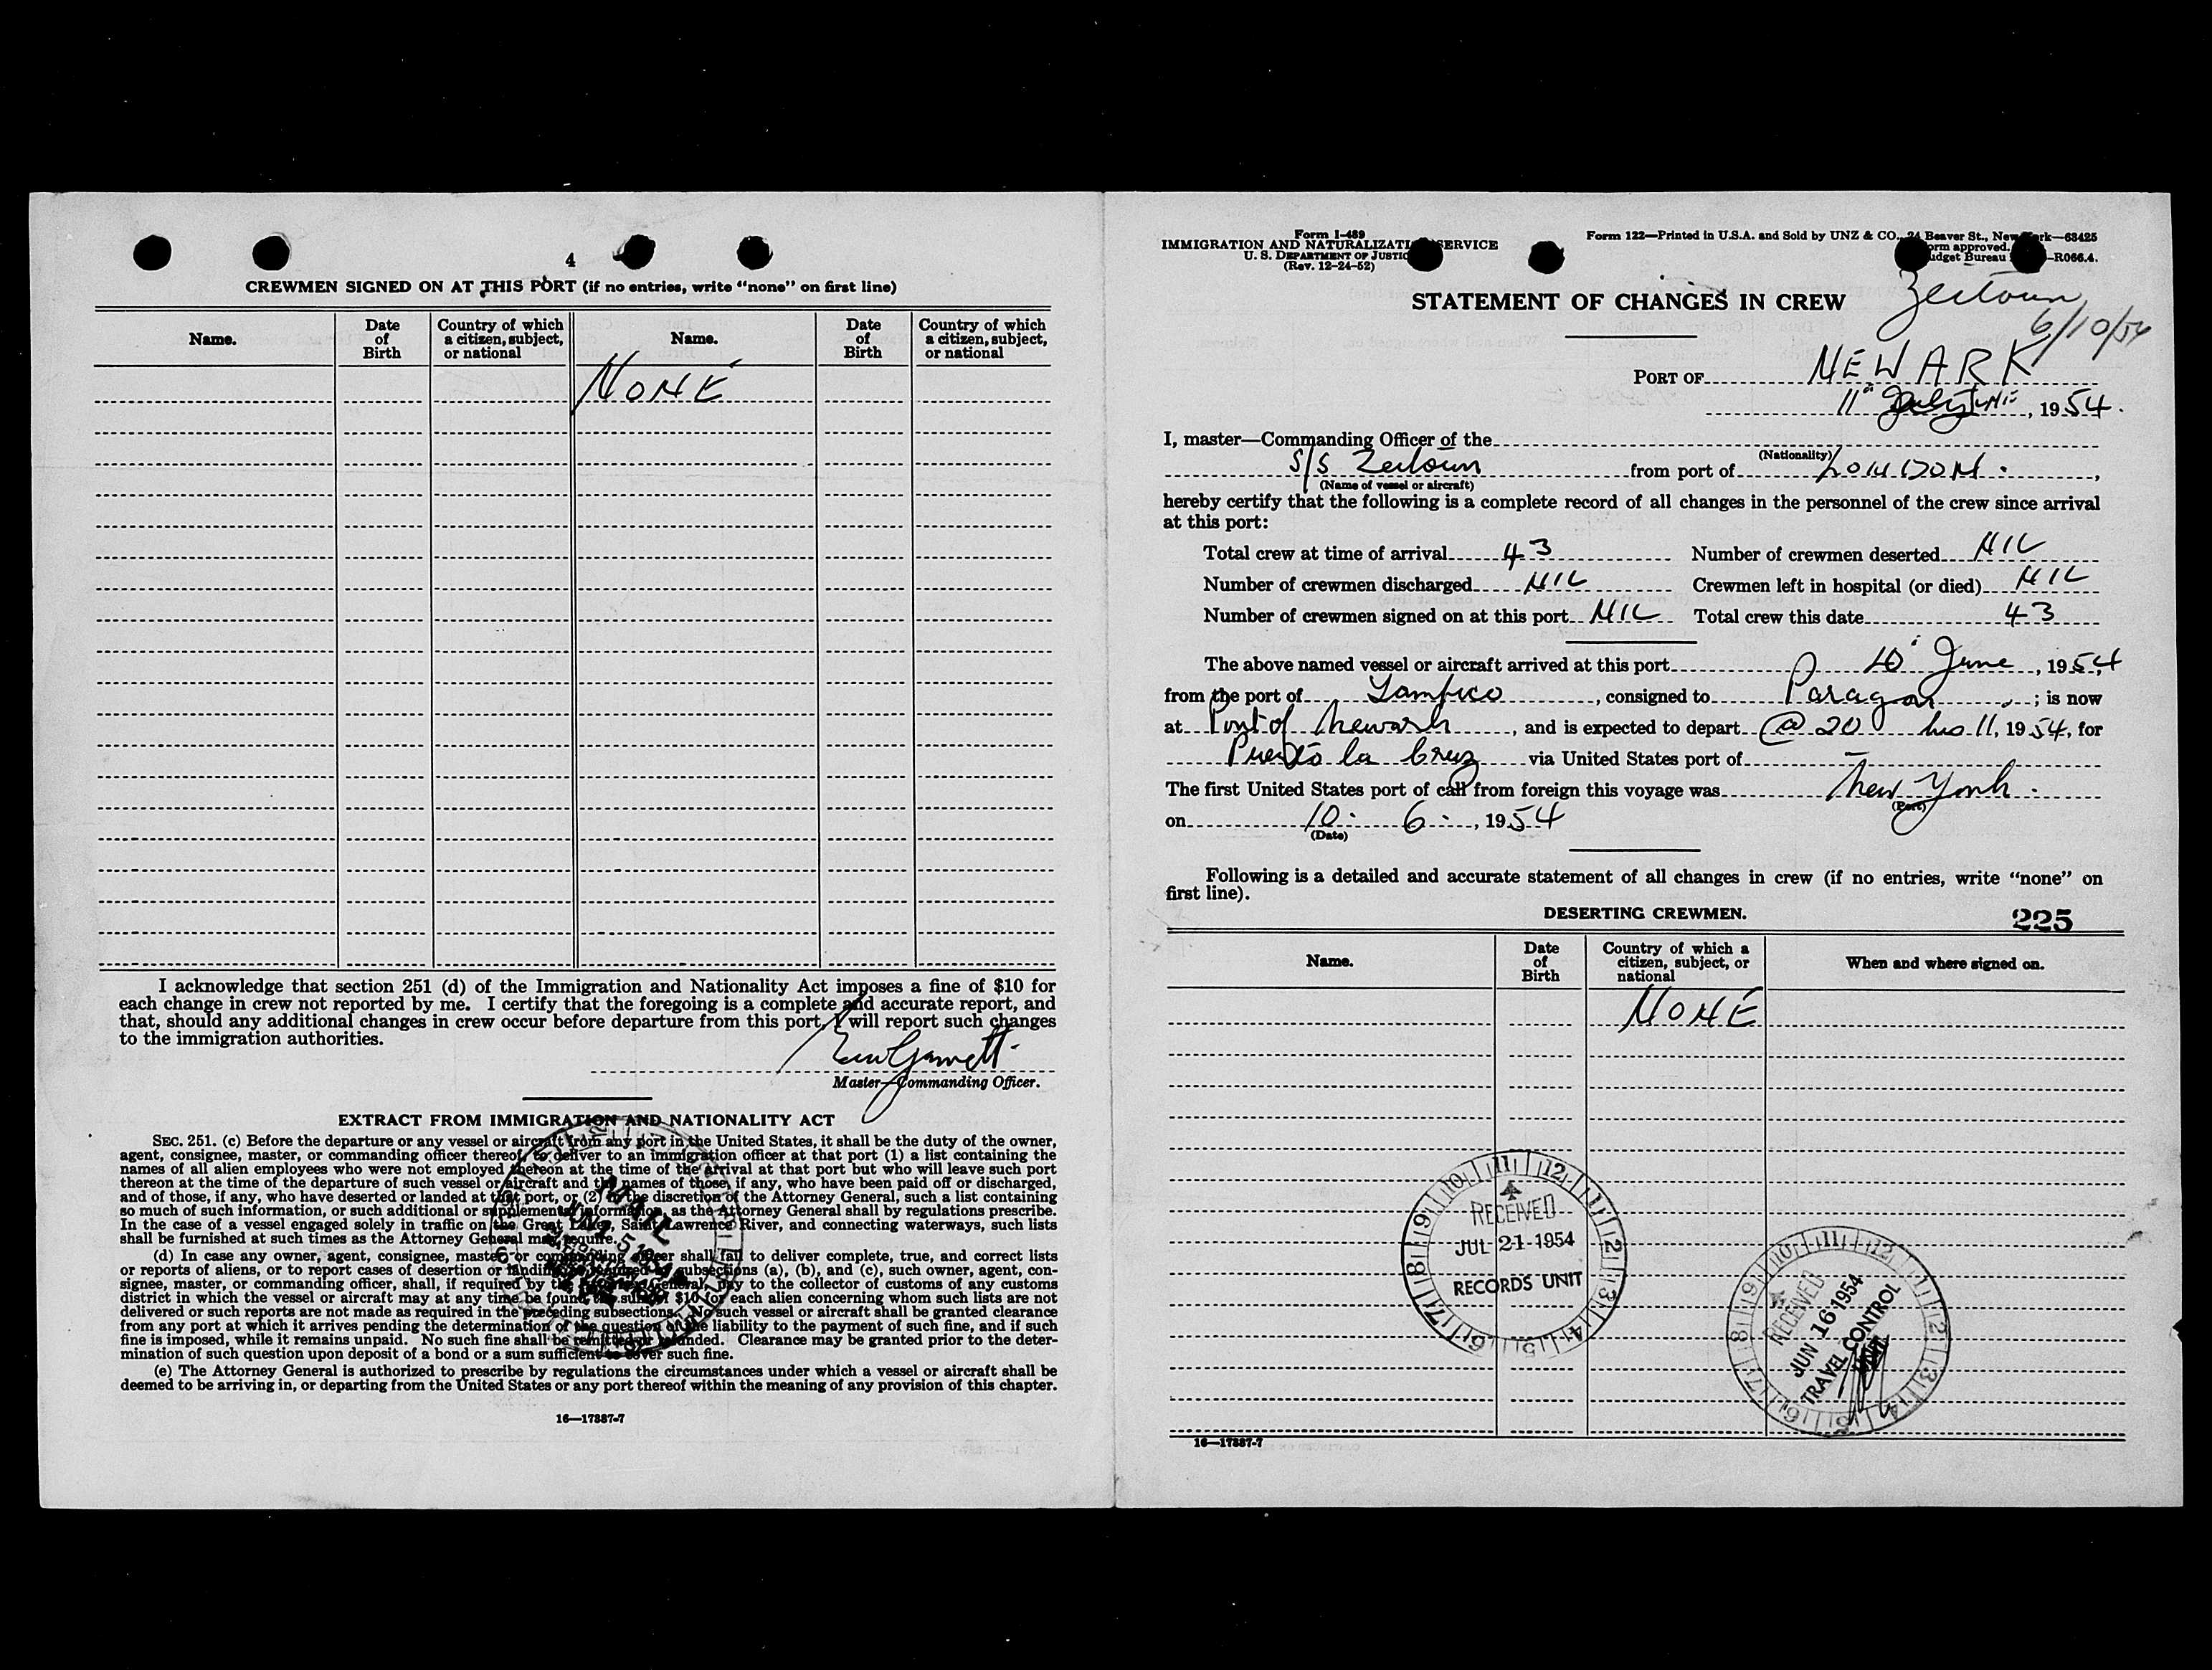 4
CREWMEN SIGNED ON AT THIS PORT (if no entries, write “none” on first line)
Name. Date of Birth Country of which a citizen, subject, or national Name. Date of Birth Country of which a citizen, subject, or national
NONE
I acknowledge that section 251 (d) of the Immigration and Nationality Act imposes a fine of $10 for
each change in crew not reported by me. I certify that the foregoing is a complete and accurate report, and
that, should any additional changes in crew occur before departure from this port, I will report such changes
to the immigration authorities.
Master—Commanding Officer.
EXTRACT FROM IMMIGRATION AND NATIONALITY ACT
SEC. 251. (c) Before the departure or any vessel or aircraft from any port in the United States, it shall be the duty of the owner,
agent, consignee, master, or commanding officer thereof, to deliver to an immigration officer at that port (1) a list containing the
names of all alien employees who were not employed thereon at the time of the arrival at that port but who will leave such port
thereon at the time of the departure of such vessel or aircraft and the names of those, if any, who have been paid off or discharged,
and of those, if any, who have deserted or landed at that port, or (2) in the discretion of the Attorney General, such a list containing
so much of such information, or such additional or supplemental information, as the Attorney General shall by regulations prescribe.
In the case of a vessel engaged solely in traffic on the Great Lakes, Saint Lawrence River, and connecting waterways, such lists
shall be furnished at such times as the Attorney General may require.
(d) In case any owner, agent, consignee, master, or commanding officer shall fail to deliver complete, true, and correct lists
or reports of aliens, or to report cases of desertion or landing, as required by subsections (a), (b), and (c), such owner, agent, con-
signee, master, or commanding officer, shall, if required by the Attorney General, pay to the collector of customs of any customs
district in which the vessel or aircraft may at any time be found, the sum of $10 for each alien concerning whom such lists are not
delivered or such reports are not made as required in the preceding subsections. No such vessel or aircraft shall be granted clearance
from any port at which it arrives pending the determination of the question of the liability to the payment of such fine, and if such
fine is imposed, while it remains unpaid. No such fine shall be remitted or refunded. Clearance may be granted prior to the deter-
mination of such question upon deposit of a bond or a sum sufficient to cover such fine.
(e) The Attorney General is authorized to prescribe by regulations the circumstances under which a vessel or aircraft shall be
deemed to be arriving in, or departing from the United States or any port thereof within the meaning of any provision of this chapter.
16—17887-7
Form I-489
IMMIGRATION AND NATURALIZATION SERVICE
U. S. DEPARTMENT OF JUSTICE
(Rev. 12-24-52)
Form 122—Printed in U.S.A. and Sold by UNZ & CO., 24 Beaver St., New York—63425
Form approved.
Budget Bureau —R066.4.
STATEMENT OF CHANGES IN CREW
Zeitoun
6/10/54
PORT OF NEWARK
11 June, 1954.
I, master—Commanding Officer of the
(Nationality)
S/S Zeitoun from port of LONDON.,
(Name of vessel or aircraft)
hereby certify that the following is a complete record of all changes in the personnel of the crew since arrival
at this port:
Total crew at time of arrival 43 Number of crewmen deserted NIL
Number of crewmen discharged NIL Crewmen left in hospital (or died) NIL
Number of crewmen signed on at this port NIL Total crew this date 43
The above named vessel or aircraft arrived at this port 10 June, 1954
from the port of Tampico, consigned to Paragon; is now
at Port of Newark, and is expected to depart @ 20 hrs 11, 1954, for
Puerto la Cruz via United States port of —
The first United States port of call from foreign this voyage was New York.
(Port)
on 10. 6., 1954
(Date)
Following is a detailed and accurate statement of all changes in crew (if no entries, write “none” on
first line).
DESERTING CREWMEN.
225
Name. Date of Birth Country of which a citizen, subject, or national When and where signed on.
NONE
RECEIVED
JUL 21 1954
RECORDS UNIT
RECEIVED
JUN 16 1954
TRAVEL CONTROL
UNIT
16—17887-7